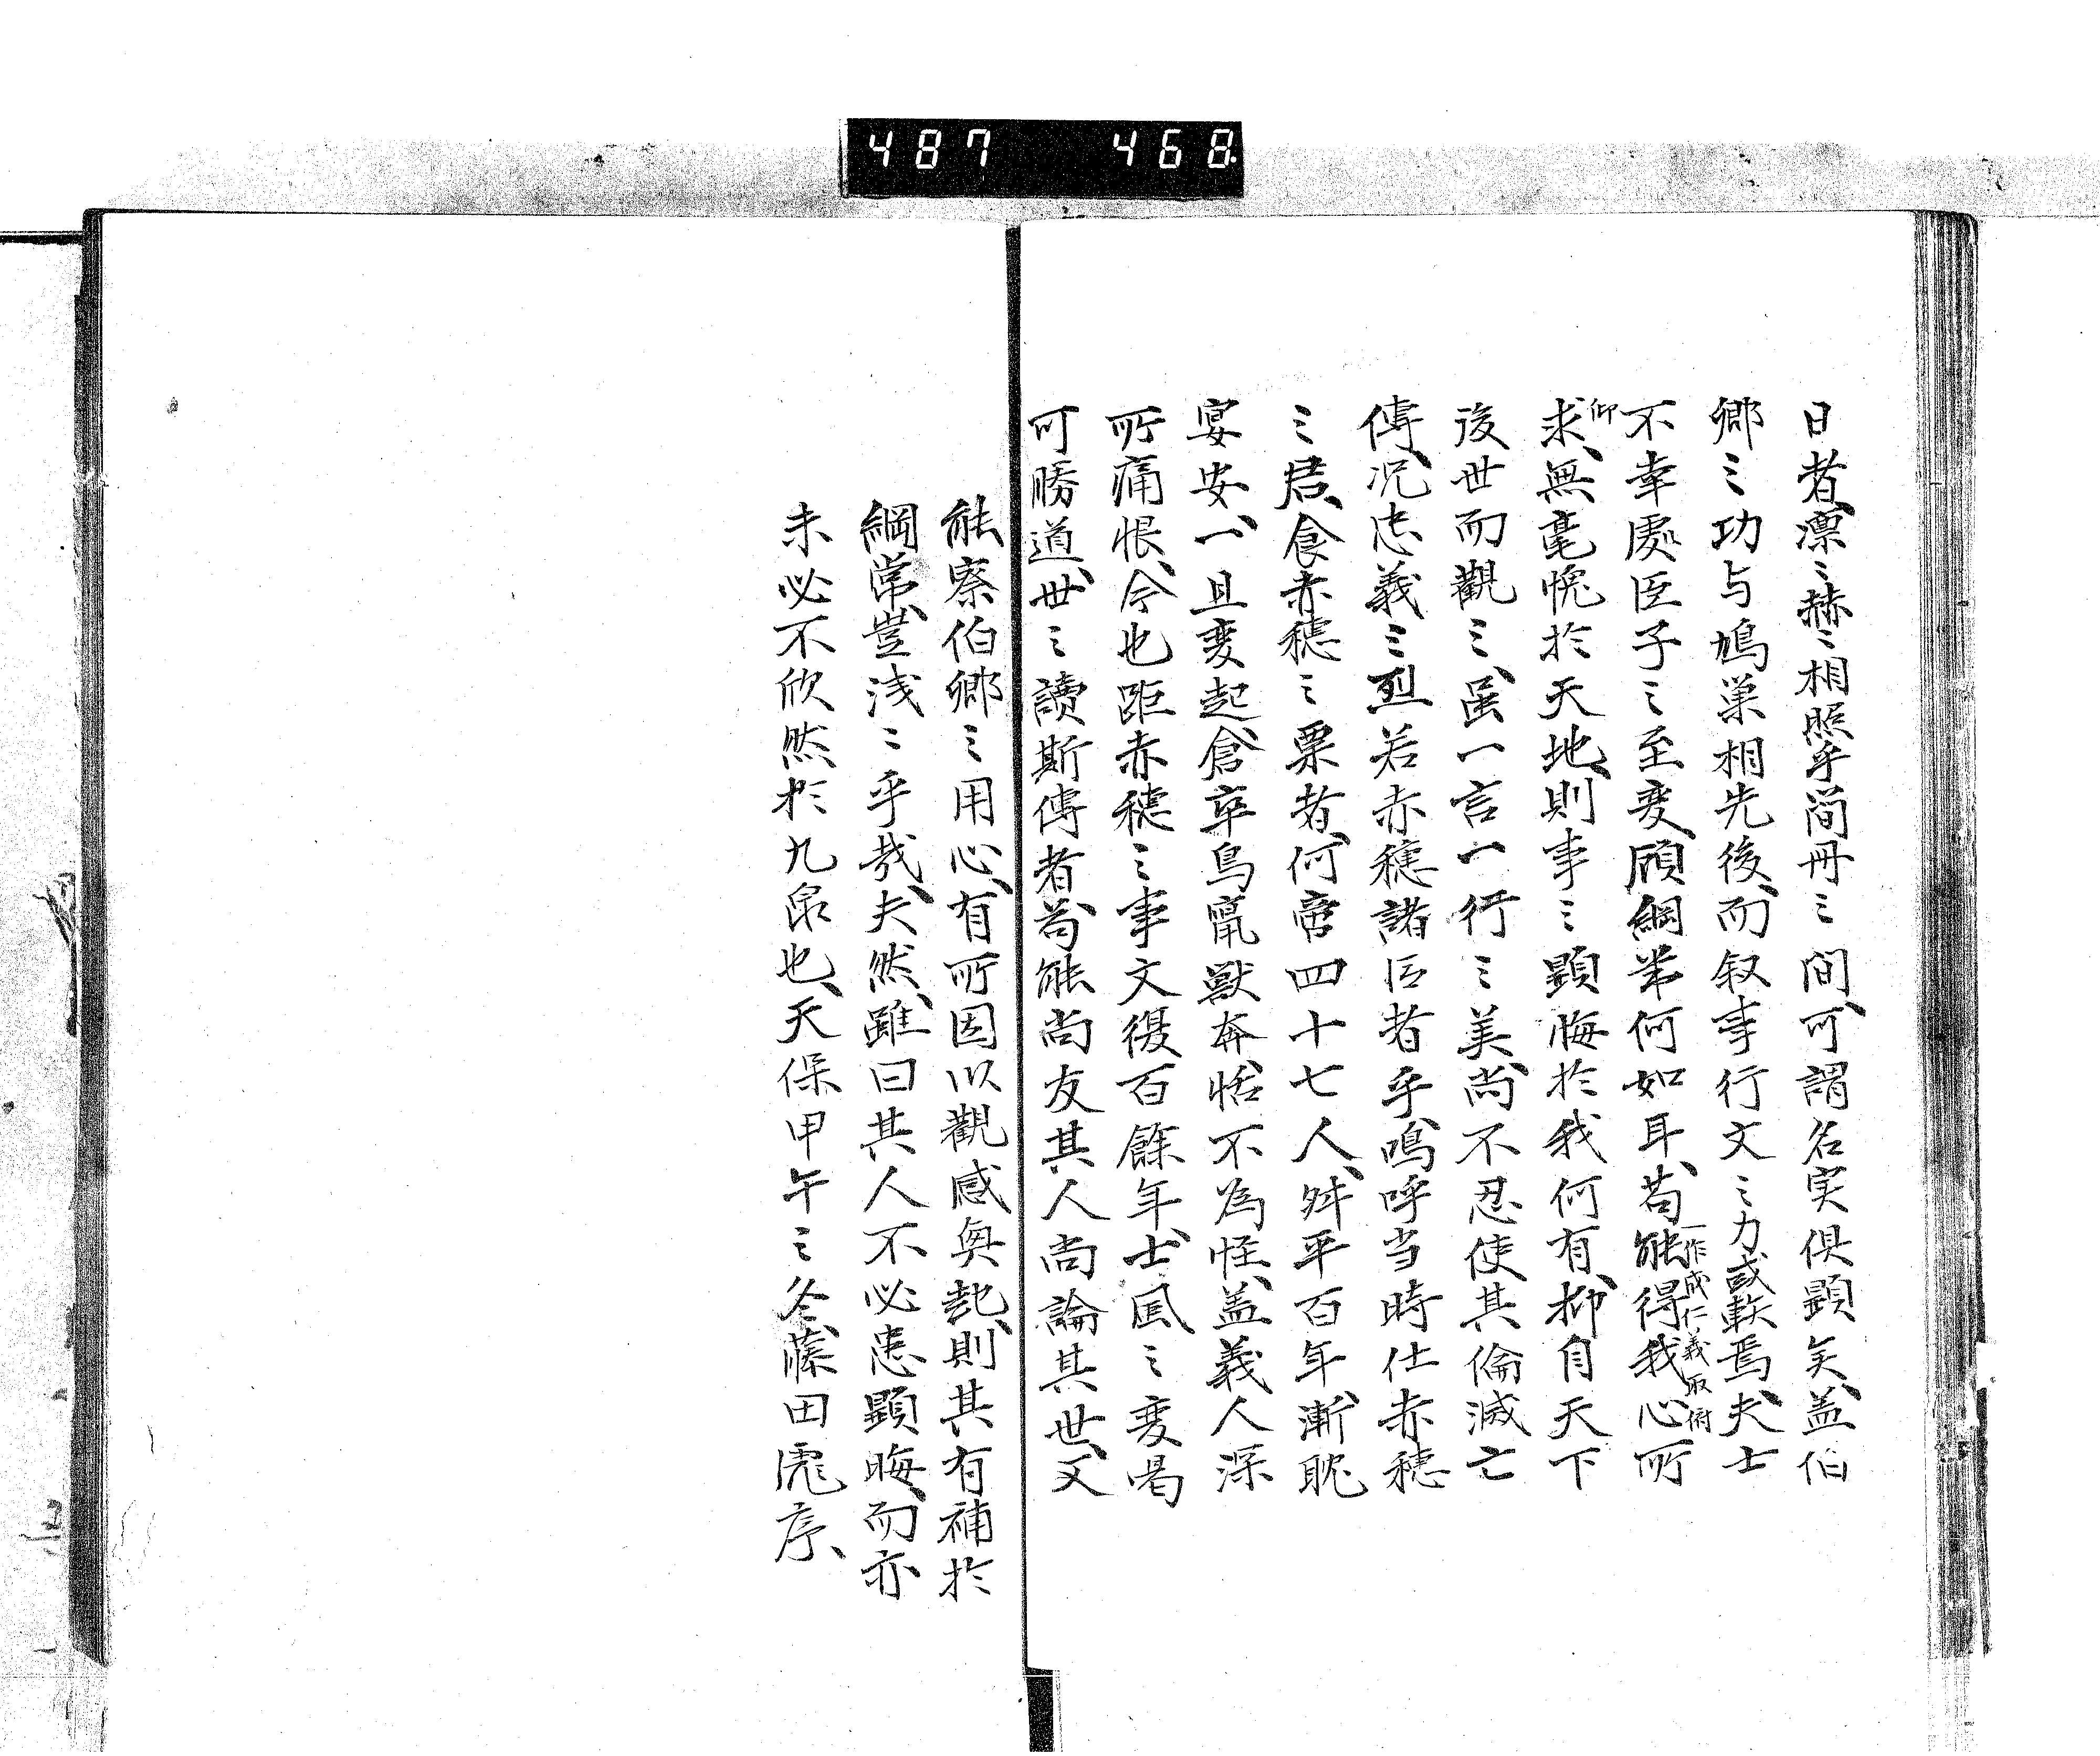 487 468
日者、凛〻赫〻相照乎簡冊之間、可謂名実倶顕矣、盖伯
卿之功与鳩巣相先後、而叙事行文之力或軼焉、夫士
不幸処臣子之至変、顧綱常何如耳、苟能得我心所
一作成仁義取俯
求、無毫愧於天地、則事之顕晦於我何有、抑自天下
仰
後世而觀之、虽一言一行之美、尚不忍使其倫滅亡
傳、况忠義之烈若赤穂諸臣者乎、嗚呼当時仕赤穂
之君、食赤穂之粟者、何啻四十七人、舛平百年、漸耽
宴安、一旦変起、倉卒鳥竄獣奔、恬不為怪、盖義人深
所痛恨、今也距赤穂之事文復百餘年、士風之変曷
可勝道、世之讀斯傳者、苟能尚友其人尚論其世、又
能察伯卿之用心、有所因以觀感興起、則其有補於
綱常、豈浅〻乎哉、夫然、雖曰其人不必患顕晦、而亦
未必不欣然於九泉也、天保甲午之冬、藤田彪序、